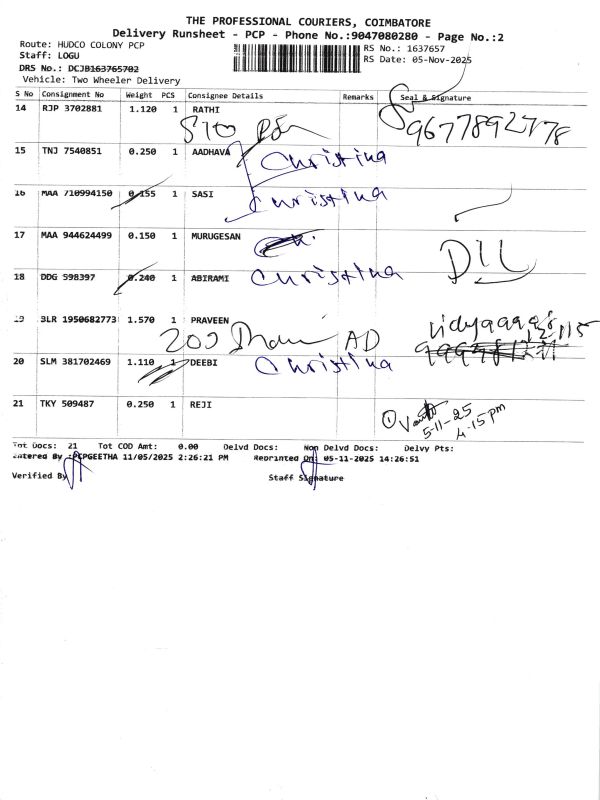 THE PROFESSIONAL COURIERS, COIMBATORE
Delivery Runsheet - PCP - Phone No.:9047080280 - Page No.:2
Route: HUDCO COLONY PCP RS No.: 1637657
Staff: LOGU RS Date: 05-Nov-2025
DRS No.: DCJB163765702
Vehicle: Two Wheeler Delivery
S No Consignment No Weight PCS Consignee Details Remarks Seal & Signature
14 RJP 3702881 1.120 1 RATHI
9677892778
15 TNJ 7540851 0.250 1 AADHAVA Christina
16 MAA 710994150 0.155 1 SASI Christina
17 MAA 944624499 0.150 1 MURUGESAN
18 DDG 598397 0.240 1 ABIRAMI Christina
19 BLR 1950682773 1.570 1 PRAVEEN
200 AD
20 SLM 381702469 1.110 1 DEEBI Christina
21 TKY 509487 0.250 1 REJI
5-11-25
4.15pm
Tot Docs: 21 Tot COD Amt: 0.00 Delvd Docs: Non Delvd Docs: Delvy Pts:
Entered By :PCPGEETHA 11/05/2025 2:26:21 PM Reprinted On: 05-11-2025 14:26:51
Verified By Staff Signature